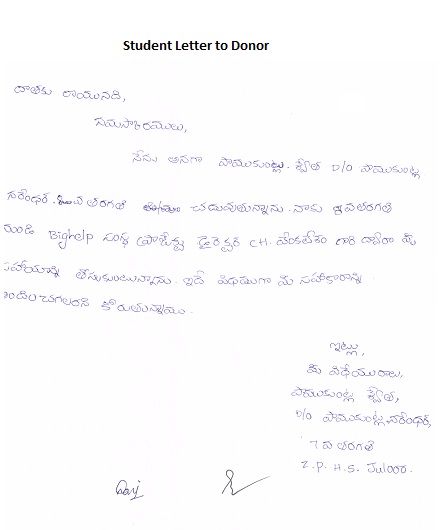 Student Letter to Donor
దాతకు రాయునది,
నమస్కారములు,
నేను అనగా పాముకుంట్ల. శ్వేత D/o పాముకుంట్ల
నరేంథర్. వ తరగతి చదువుతున్నాను. నాకు వ తరగతి
నుండి Bighelp సంస్థ ప్రాజెక్టు డైరెక్టర్ CH. వెంకటేశం గారి ద్వారా మీ
సహాయాన్ని తీసుకుంటున్నాను. ఇదే విధముగా మీ సహకారాన్ని
అందించగలరని కోరుతున్నాము.
ఇట్లు,
మీ విధేయురాలు,
పాముకుంట్ల శ్వేత,
D/o పాముకుంట్ల నరేంథర్,
7వ తరగతి
Z.P.H.S. Julooru.